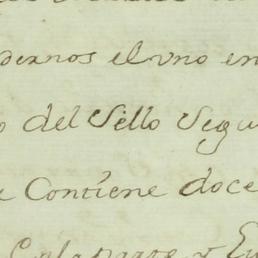 dernos el vno en
o del Sello Segu
e Contiene doce
en la parte y Eu